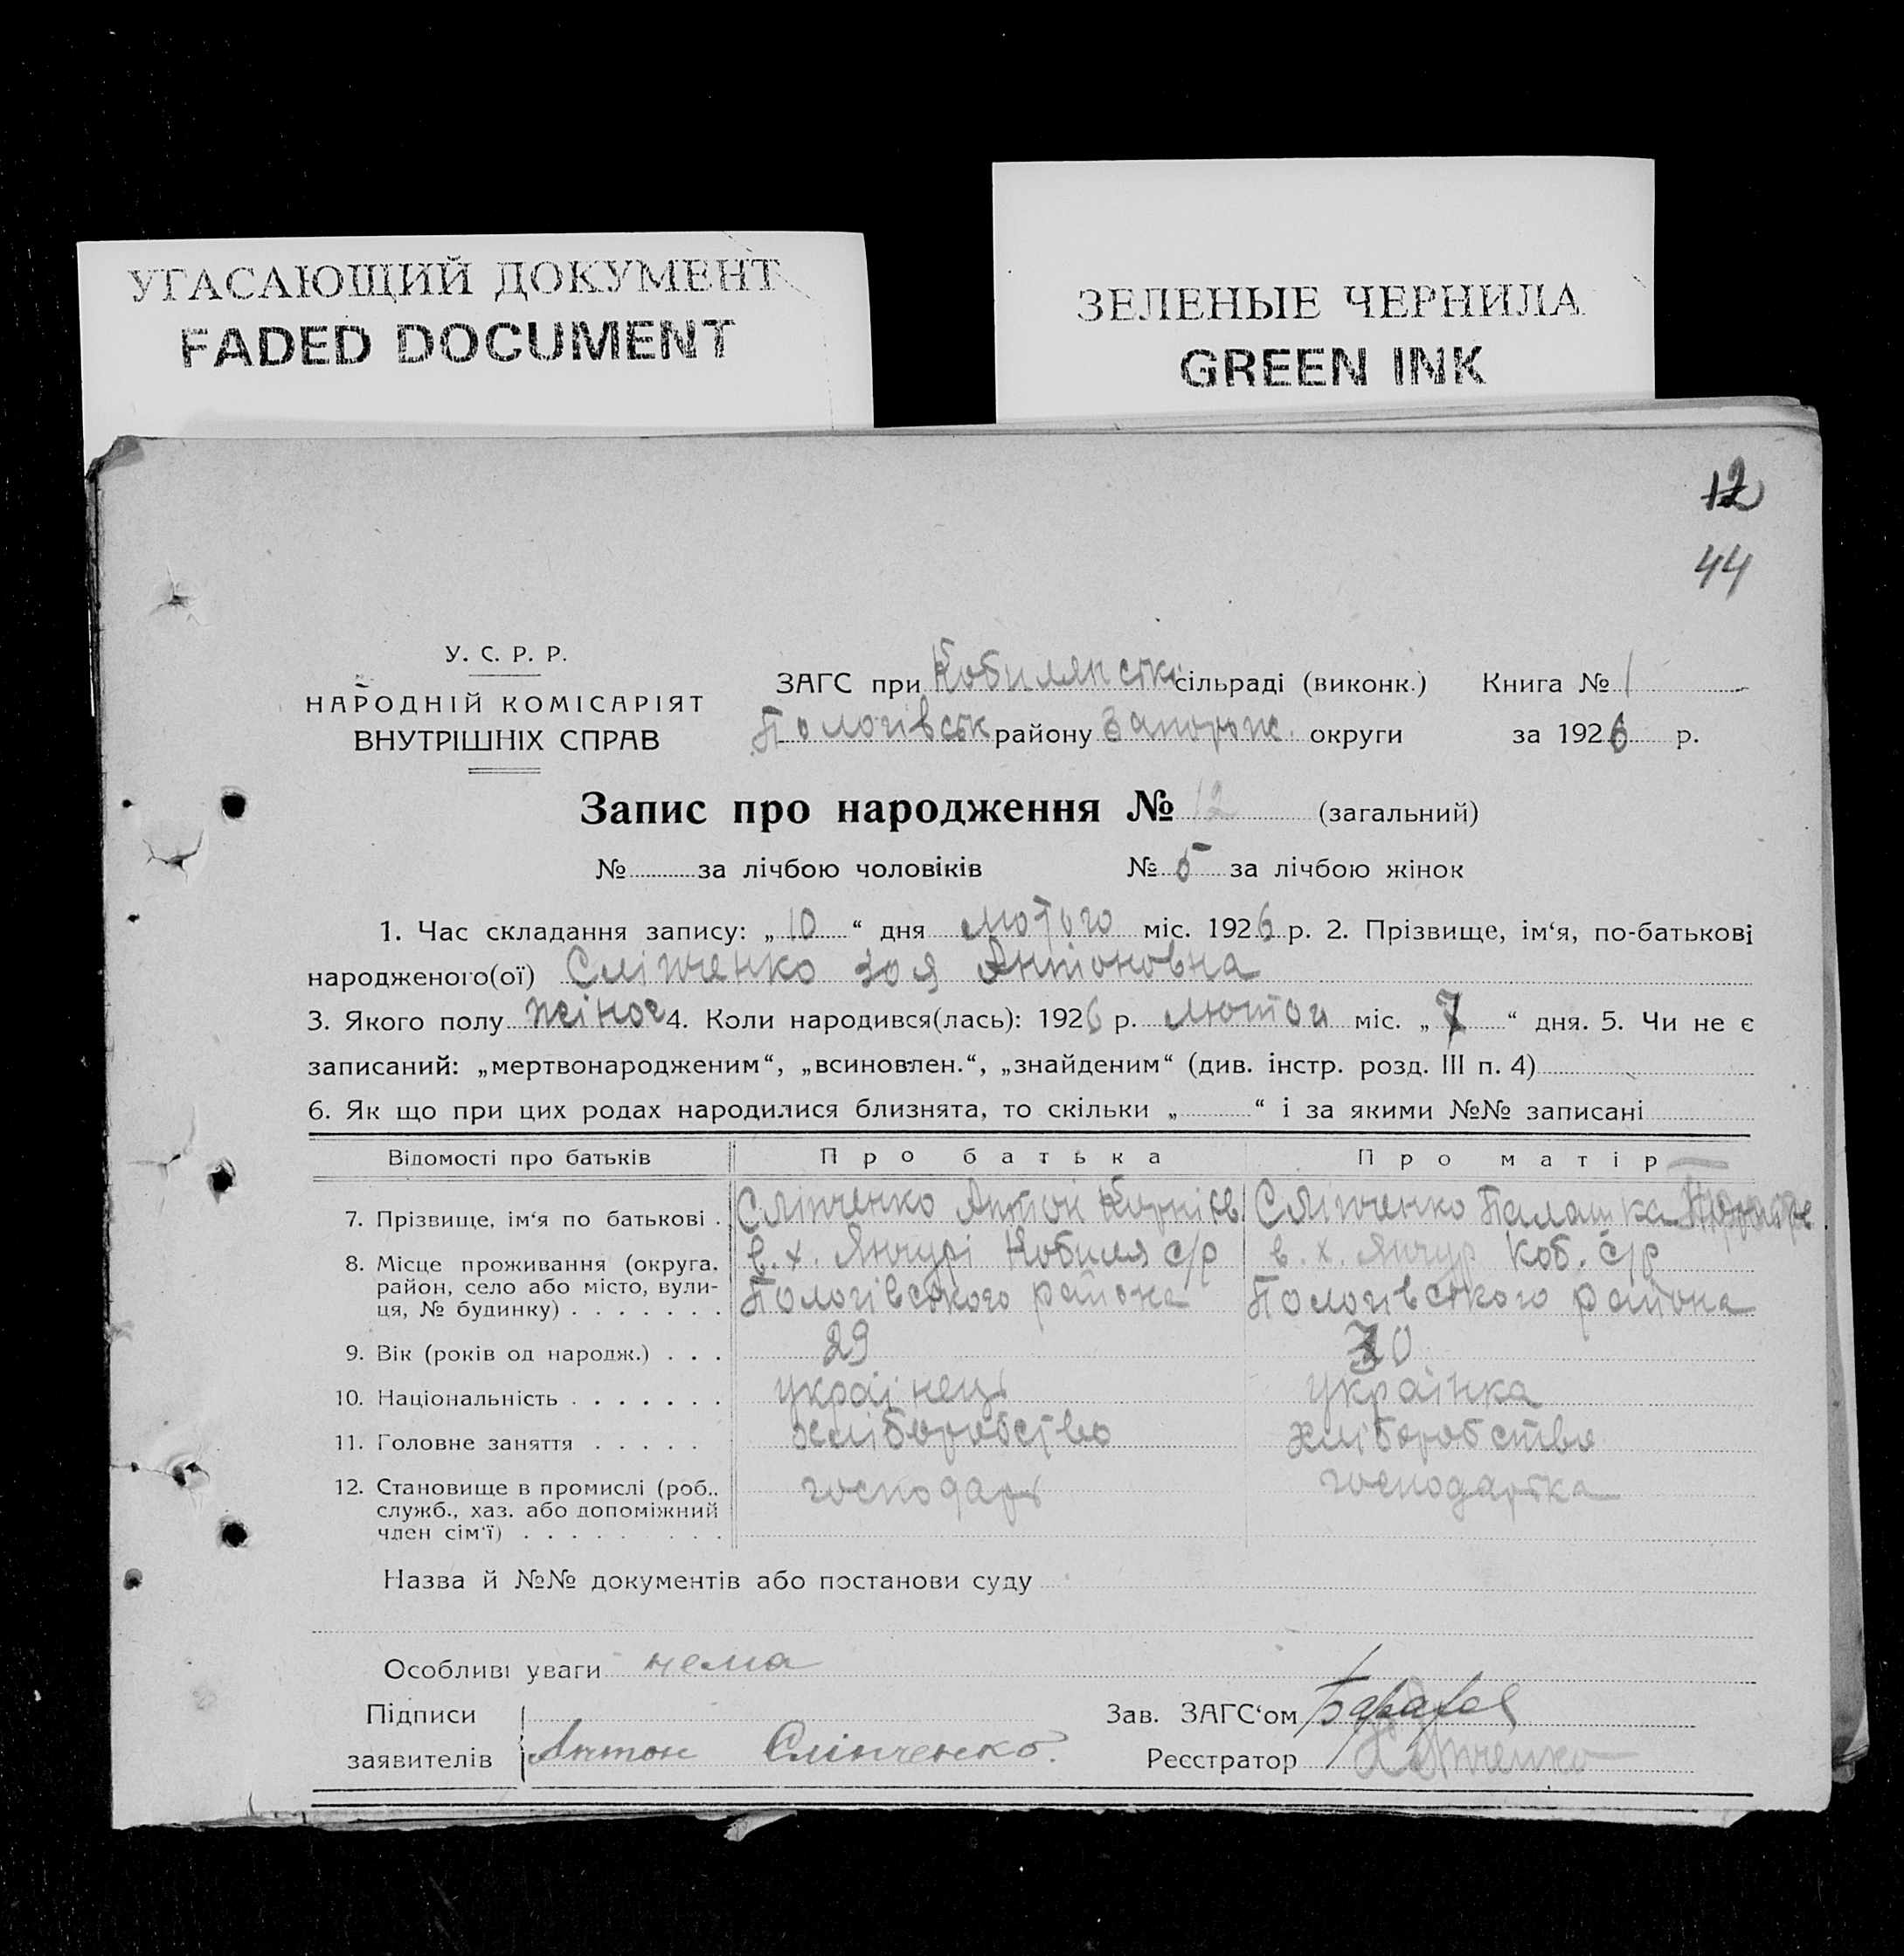 УГАСАЮЩИЙ ДОКУМЕНТ
FADED DOCUMENT
ЗЕЛЕНЫЕ ЧЕРНИЛА
GREEN INK
12
44
У. С. Р. Р.
НАРОДНІЙ КОМІСАРІЯТ
ВНУТРІШНІХ СПРАВ
ЗАГС при Кобилянскі сільраді (виконк.) Книга № 1
Пологівськ району Запорож. округи за 1926 р.
Запис про народження № 12 (загальний)
№ за лічбою чоловіків № 5 за лічбою жінок
1. Час складання запису: „ 10 “ дня лютого міс. 1926 р. 2. Прізвище, ім‘я, по-батькові
народженого(ої) Сліпченко Зоя Антоновна
3. Якого полу жіноч 4. Коли народився(лась): 1926 р. лютого міс. „ 7 “ дня. 5. Чи не є
записаний: „мертвонародженим“, „всиновлен.“, „знайденим“ (див. інстр. розд. III п. 4)
6. Як що при цих родах народилися близнята, то скільки „ “ і за якими №№ записані
Відомості про батьків Про батька Про матір
7. Прізвище, ім‘я по батькові . Сліпченко Антон Сліпченко Палашка
8. Місце проживання (округа. в. х. Янчурі Кобиля с/р в. х. Янчур Коб. с/р
район, село або місто, вули- Пологівського района Пологівского района
ця, № будинку) . . . . . . .
9. Вік (років од народж.) . . . 29 30
10. Національність . . . . . . . українець українка
11. Головне заняття . . . . . хліборобство хліборобство
12. Становище в промислі (роб.. господарь господарка
служб., хаз. або допоміжний
член сім‘ї) . . . . . . . .
Назва й №№ документів або постанови суду
Особливі уваги нема
Підписи Зав. ЗАГС‘ом
заявителів Антон Сліпченко. Реєстратор